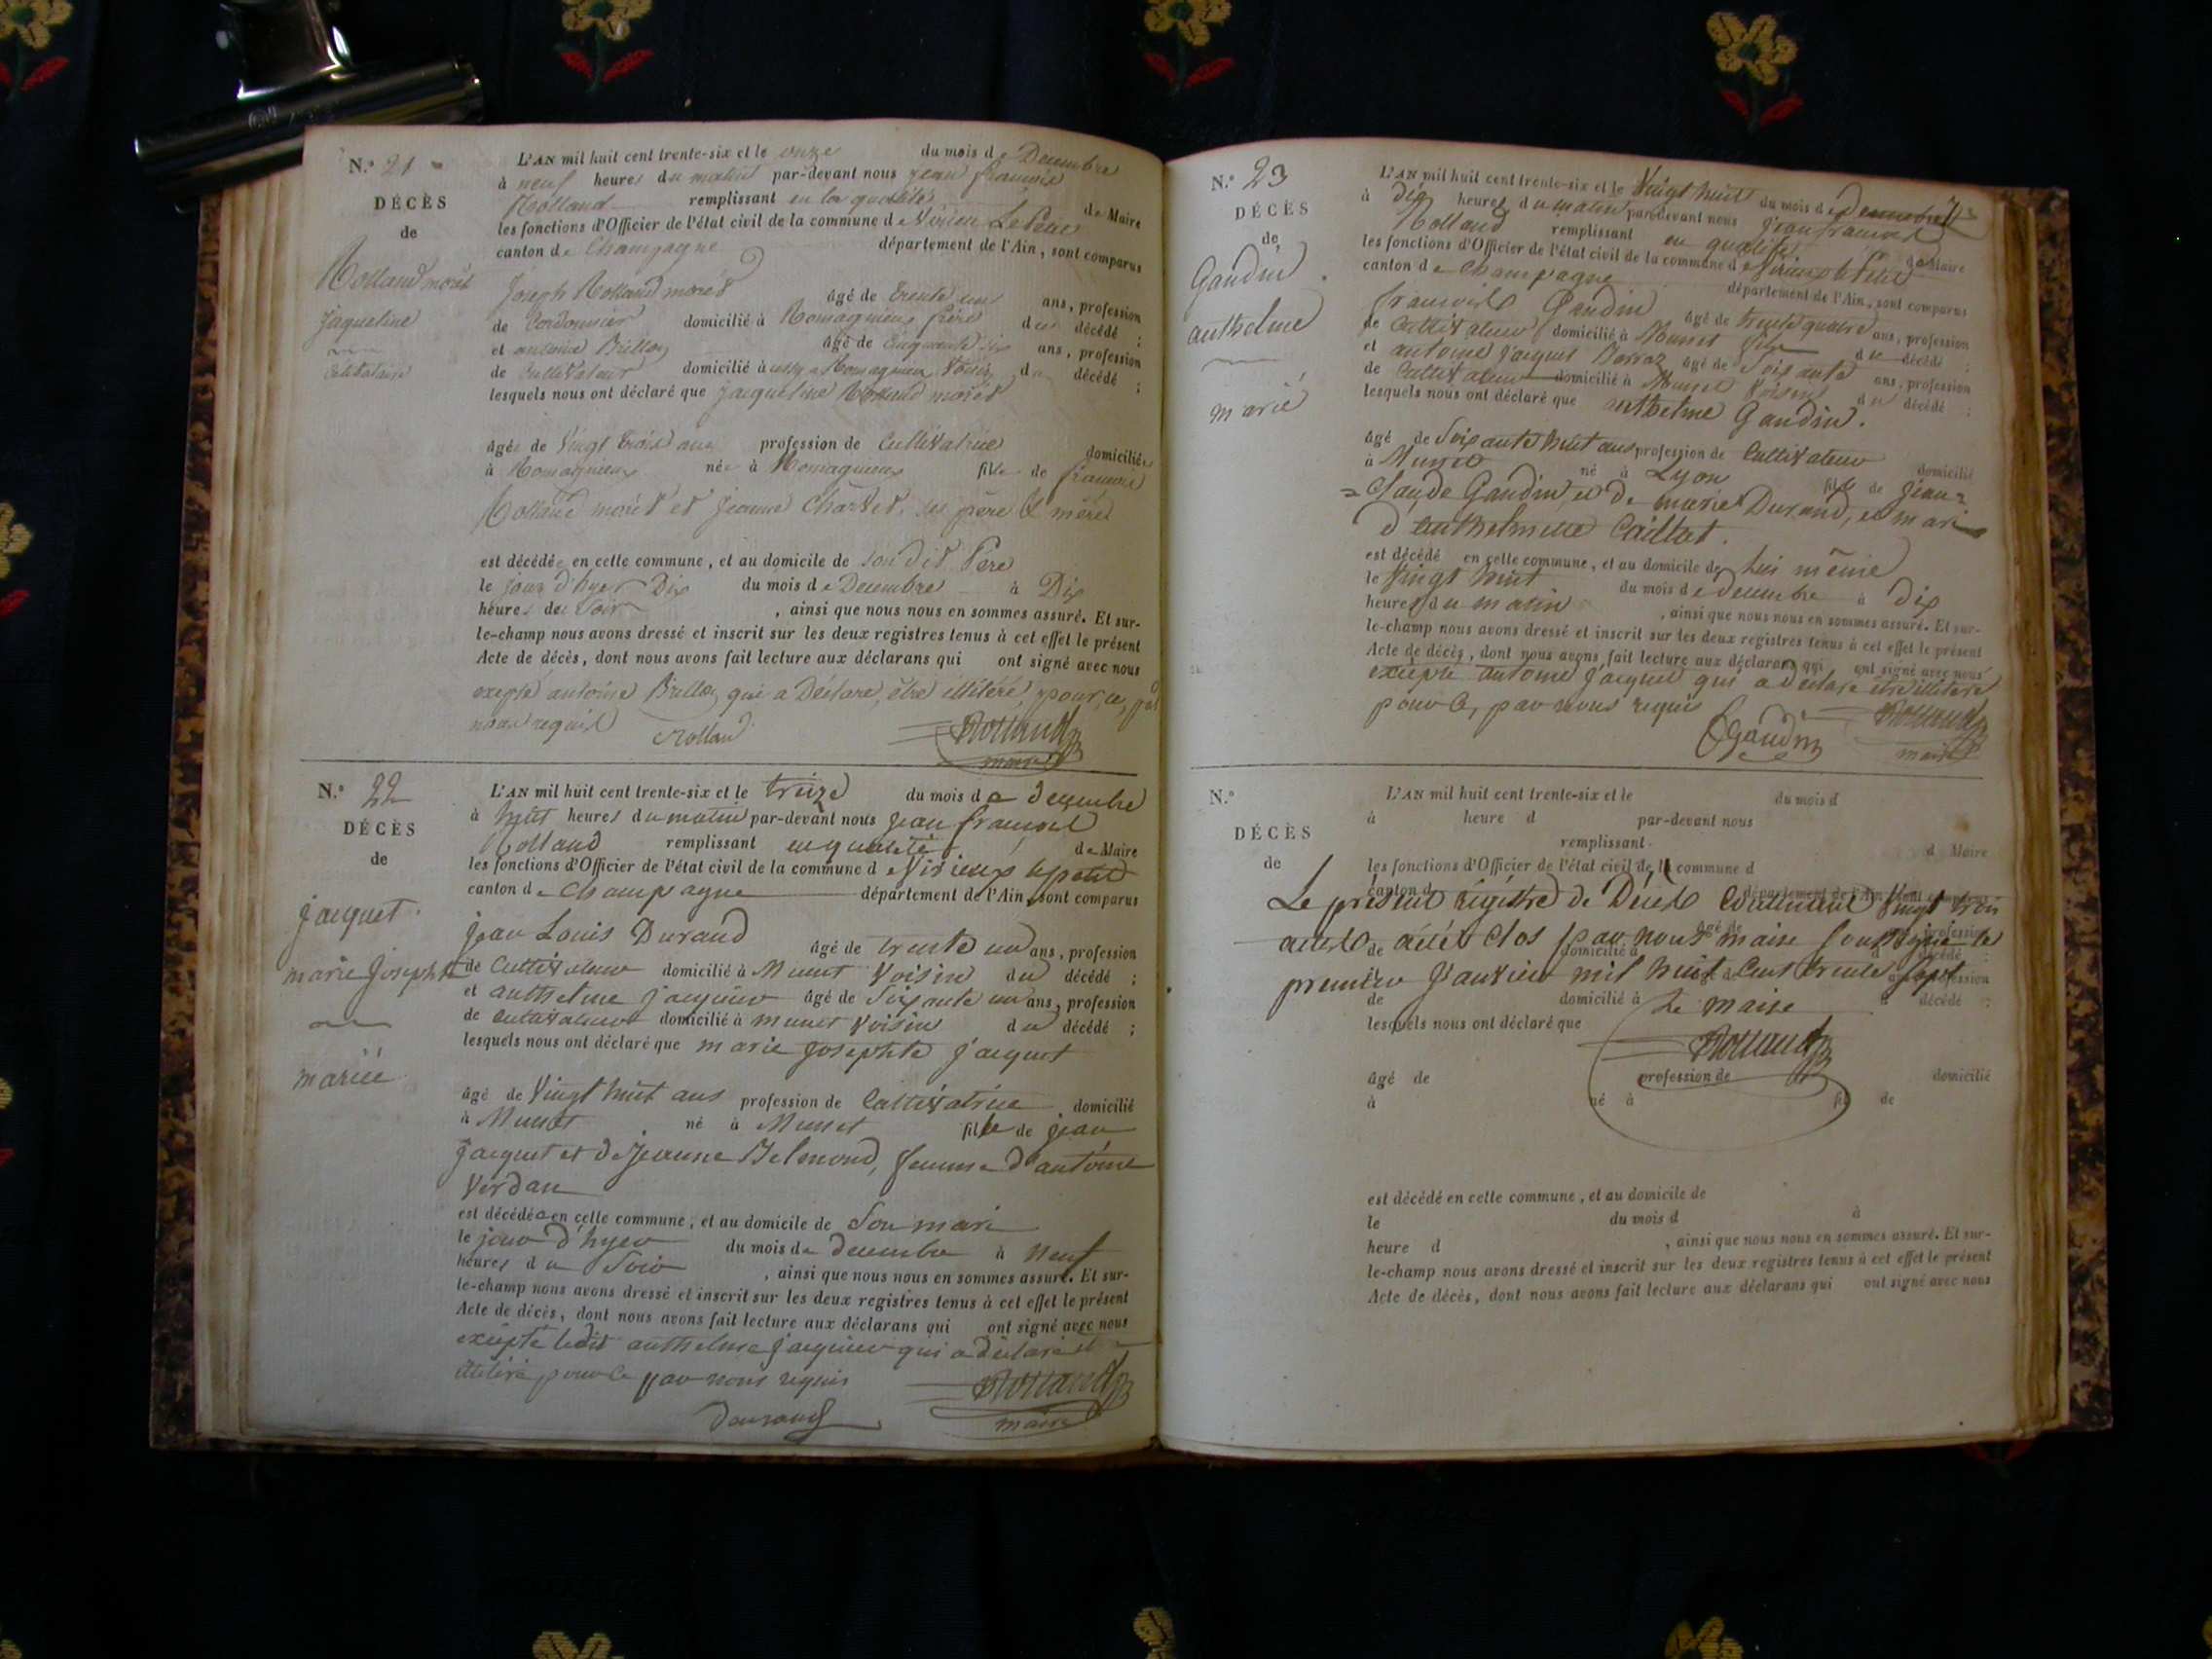 N.° 21
DÉCÈS
de
Rolland moret
Jaqueline
Célibataire
L'AN mil huit cent trente-six et le onze du mois de Decembre
à neuf heures du matin par-devant nous jean françois
Rolland remplissant en la qualité de Maire
les fonctions d'Officier de l'état civil de la commune de Virieu Le Petit
canton de Champagne département de l'Ain, sont comparus
Joseph Rolland moret âgé de trente un ans, profession
de Cordonnier domicilié à Romagnieux frère du décédé ;
et antoine Brillon âgé de Cinquante six ans, profession
de Cultivateur domicilié à Romagnieux Voisin du décédé ;
lesquels nous ont déclaré que Jacqueline Rolland moret
âgée de Vingt trois ans profession de Cultivatrice domiciliée
à Romagnieux née à Romagnieux fille de françois
Rolland moret et Jeanne Charvet, ses père & mère
est décédée en cette commune, et au domicile de son dit Père
le jour d'hyer Dix du mois de Decembre à Dix
heures du Soir , ainsi que nous nous en sommes assuré. Et sur-
le-champ nous avons dressé et inscrit sur les deux registres tenus à cet effet le présent
Acte de décès, dont nous avons fait lecture aux déclarans qui ont signé avec nous
excepté antoine Brillon qui a Déclaré être illitéré, pour ce, par
nous requis
Rollan Rolland
maire
N.° 22
DÉCÈS
de
jacquet
marie Josephte
mariée
L'AN mil huit cent trente-six et le treize du mois de decembre
à huit heures du matin par-devant nous jean françois
Rolland remplissant en qualité de Maire
les fonctions d'Officier de l'état civil de la commune de Virieux le petit
canton de Champagne département de l'Ain, sont comparus
jean Louis Durand âgé de trente un ans, profession
de Cultivateur domicilié à Munet Voisin du décédé ;
et anthelme jacquier âgé de Soixante un ans, profession
de Cultivateur domicilié à munet Voisin du décédé ;
lesquels nous ont déclaré que marie Josephte jacquet
âgé de Vingt huit ans profession de Cultivatrice domicilié
à Munet né à Munet fille de jean
Jacquet et de Jeanne Belmond, femme d'antoine
Verdan
est décédée en cette commune, et au domicile de Son mari
le jour d'hyer du mois de decembre à Neuf
heures du Soir , ainsi que nous nous en sommes assuré. Et sur-
le-champ nous avons dressé et inscrit sur les deux registres tenus à cet effet le présent
Acte de décès, dont nous avons fait lecture aux déclarans qui ont signé avec nous
excepté ledit anthelme jacquier qui a déclaré
illitéré pour ce par nous requis
Durand Rolland
maire
N.° 23
DÉCÈS
de
Gandin
anthelme
marié
L'AN mil huit cent trente-six et le Vingt huit du mois de Decembre
à dix heures du matin par-devant nous jean françois
Rolland remplissant en qualité de Maire
les fonctions d'Officier de l'état civil de la commune de Virieu le Petit
canton de Champagne département de l'Ain, sont comparus
françois Gandin âgé de trente quatre ans, profession
de Cultivateur domicilié à Munet fils du décédé ;
et antoine jacques Borraz âgé de Soixante ans, profession
de Cultivateur domicilié à Munet Voisin du décédé ;
lesquels nous ont déclaré que anthelme Gandin.
âgé de Soixante huit ans profession de Cultivateur domicilié
à Munet né à Lyon fils de jean=
=Claude Gandin, et de marie Durand, et mari
d'anthelmette Caillat.
est décédé en cette commune, et au domicile de lui même
le Vingt huit du mois de decembre à dix
heures du matin , ainsi que nous nous en sommes assuré. Et sur-
le-champ nous avons dressé et inscrit sur les deux registres tenus à cet effet le présent
Acte de décès, dont nous avons fait lecture aux déclarans qui ont signé avec nous
excepté antoine jacques qui a déclaré être illitéré
pour ce, par nous requis
Gandin Rolland
maire
N.°
DÉCÈS
de
L'AN mil huit cent trente-six et le du mois d
à heure d par-devant nous
remplissant d Maire
les fonctions d'Officier de l'état civil de la commune d
canton d département de l'Ain, sont comparus
Le présent régistre de Décès Contenant Vingt trois
actes, a été clos par nous maire soussigné le
premier Janvier mil huit Cent trente Sept
Le maire
Rolland
âgé de profession
de domicilié à d décédé ;
de domicilié à d décédé ;
lesquels nous ont déclaré que
âgé de profession de domicilié
à né à fil de
est décédé en cette commune, et au domicile de
le du mois d à
heure d , ainsi que nous nous en sommes assuré. Et sur-
le-champ nous avons dressé et inscrit sur les deux registres tenus à cet effet le présent
Acte de décès, dont nous avons fait lecture aux déclarans qui ont signé avec nous